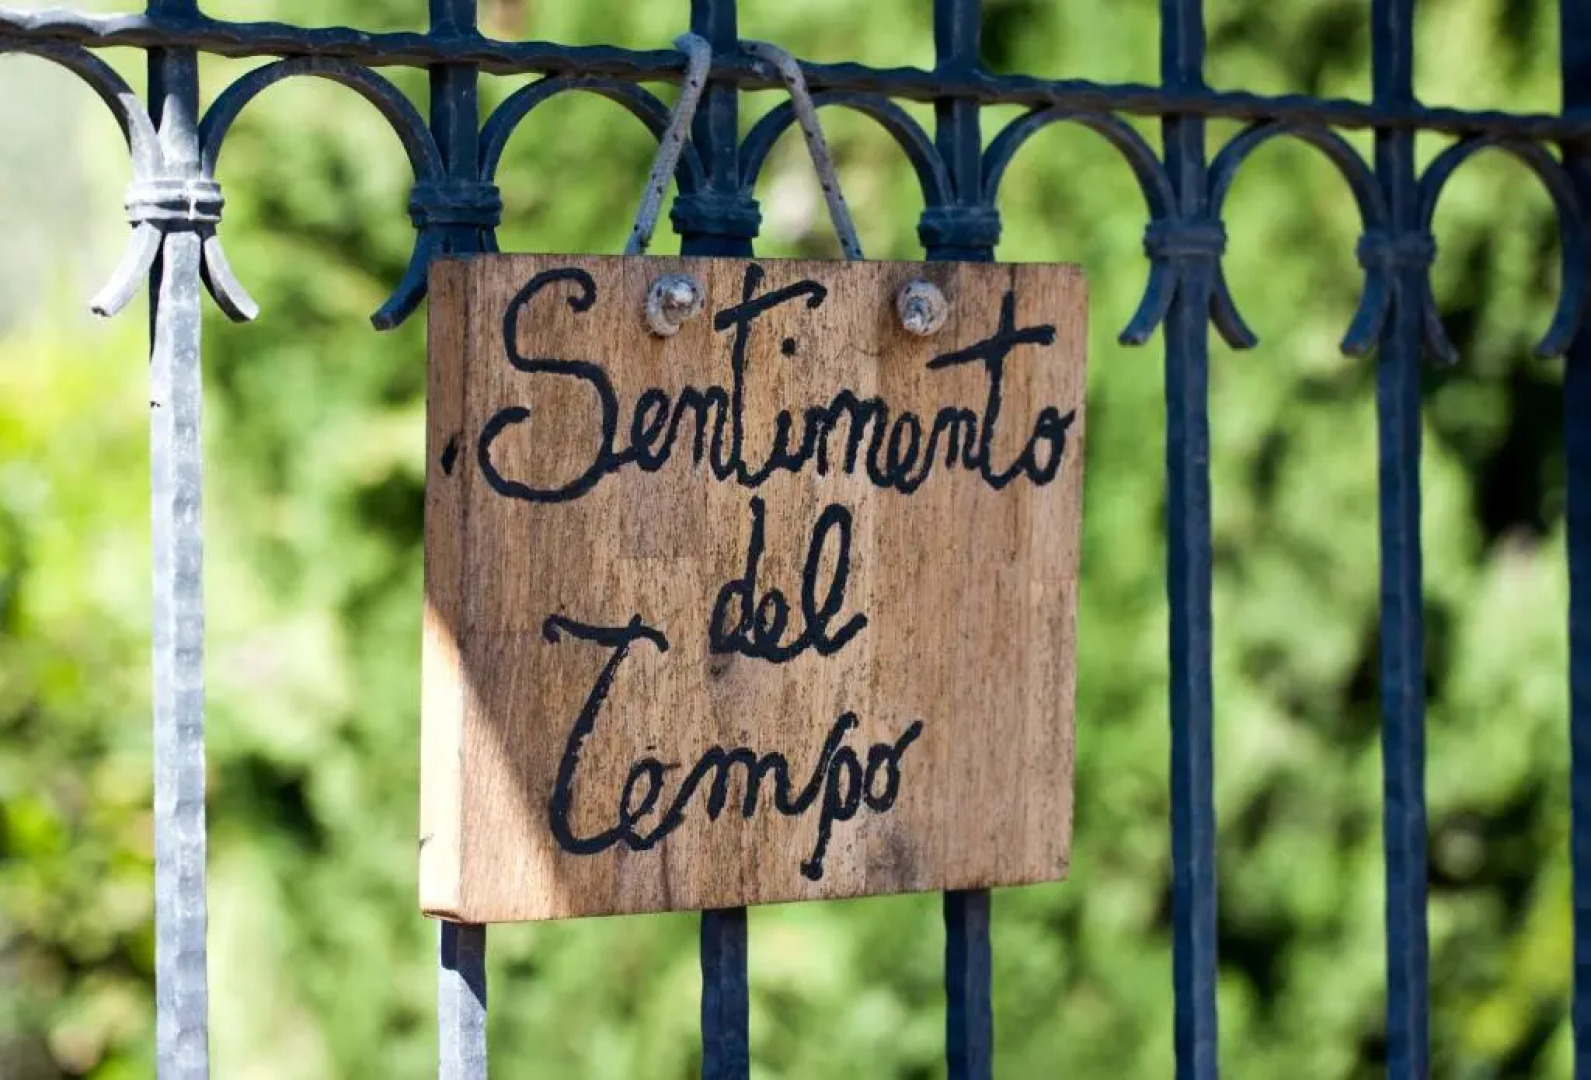 Sentimento
del
Tempo